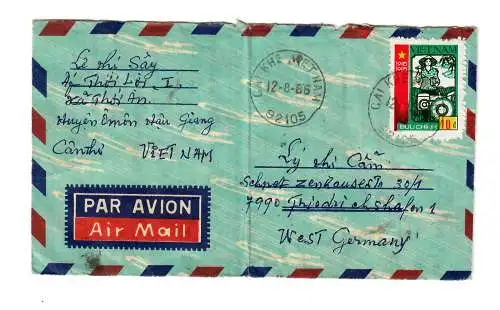 Lê thị Sảy
Ấp Thới Lợi I
Xã Thới An
Huyện Ômôn Hậu Giang
Cần thơ VIET NAM
PAR AVION
Air Mail
CÁI KHẾ VIETNAM
12-8-86
92105
VIETNAM
1945
1985
BƯU CHÍNH
10đ
CÁI KHẾ
Lý thị Cẩm
30/1
7990 Friedrichshafen 1
West Germany